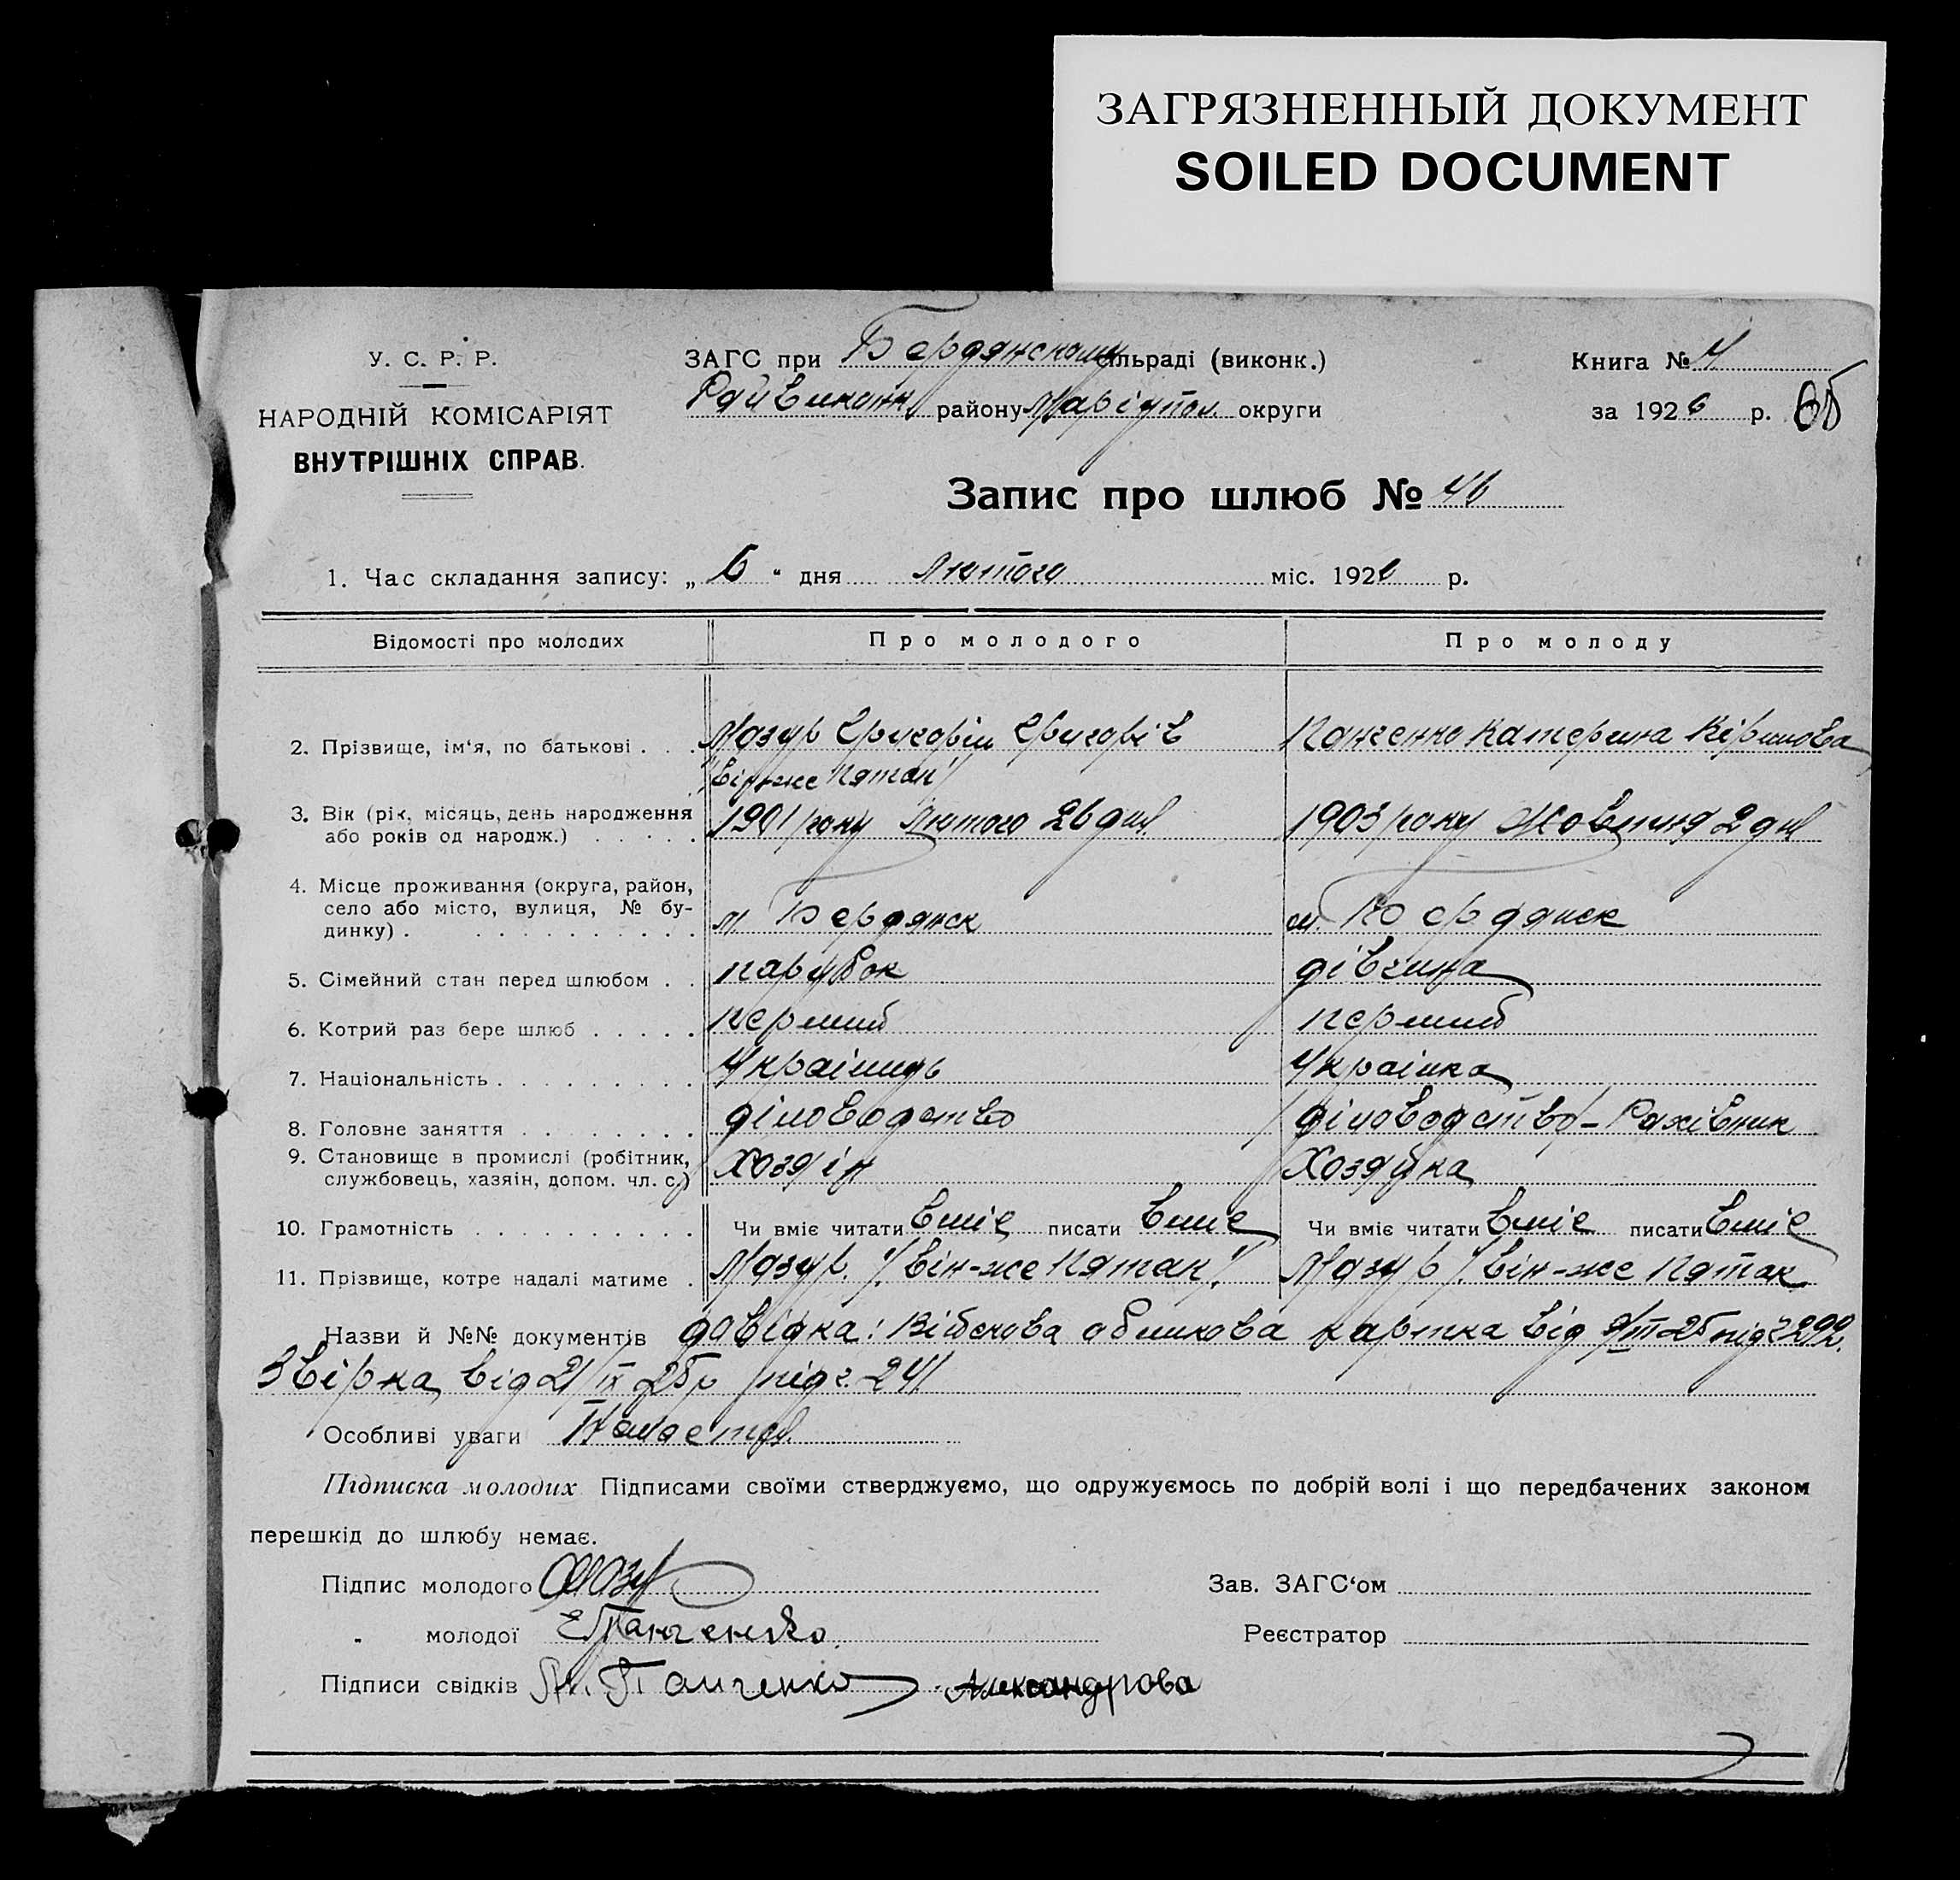 ЗАГРЯЗНЕННЫЙ ДОКУМЕНТ
SOILED DOCUMENT
У. С. Р. Р.
НАРОДНІЙ КОМІСАРІЯТ
ВНУТРІШНІХ СПРАВ.
ЗАГС при Бердянському сільраді (виконк.)
Райвиконк району Маріупол. округи
Книга №
за 1926 р.
Запис про шлюб № 46
1. Час складання запису: „ 6 “ дня Лютого міс. 1926 р.
Відомості про молодих Про молодого Про молоду
2. Прізвище, ім‘я, по батькові . . . Мазур Григорій Григорів Панченко Катерина Кірилова
"він-же Пятак"
3. Вік (рік, місяць, день народження 1901 року Лютого 26 дня 1903 року Жовтня 2 дня
або років од народж.) . . . .
4. Місце проживання (округа, район,
село або місто, вулиця, № бу- м. Бердянск м. Бердянск
динку) . . . . . . . . . .
5. Сімейний стан перед шлюбом . . парубок дівчина
6. Котрий раз бере шлюб . . . . . перший перший
7. Національність . . . . . . . . . Українець Українка
8. Головне заняття . . . . . . . . діловодство діловодство - Рахівник
9. Становище в промислі (робітник, Хозяін Хозяйка
службовець, хазяїн, допом. чл. с.)
10. Грамотність . . . . . . . . . . Чи вміє читати вміє писати вміє Чи вміє читати вміє писати вміє
11. Прізвище, котре надалі матиме . Мазур "він-же Пятак" Мазур "він-же Пятак
Назви й №№ документів довідка: Військова обликова картка від 9/III-25 під ч 292.
Звірка від 21/IX 25р під ч. 241
Особливі уваги
Підписка молодих Підписами своїми стверджуємо, що одружуємось по добрій волі і що передбачених законом
перешкід до шлюбу немає.
Підпис молодого Мазур Зав. ЗАГС‘ом
„ молодої Е Панченко Реєстратор
Підписи свідків Панченко Александрова